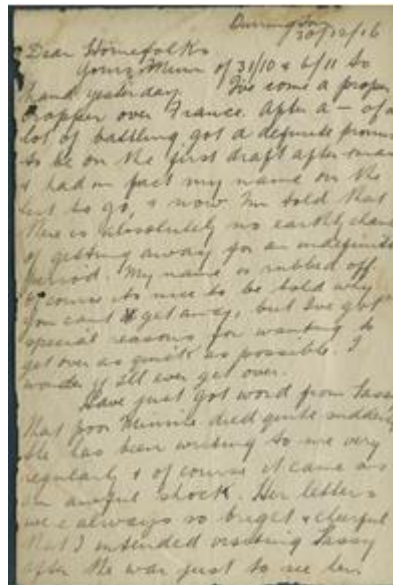 Durrington
30/12/16
Dear Homefolks
Yours Mum of 31/10 & 6/11 to
hand yesterday. I've come a proper
cropper over France. After a — of a
lot of battling got a definite promise
to be on the first draft after
& had in fact my name on the
list to go, & now I'm told that
there is absolutely no earthly chance
of getting away for an indefinite
period. My name is rubbed off
of course its nice to be told why
you cant get away, but I've got
special reasons for wanting to
get over as quick as possible. I
wonder if I'll ever get over.
Have just got word from Tassy
that poor Minnie died quite suddenly
She has been writing to me very
regularly & of course it came as
an awful shock. Her letters
were always so bright & cheerful
that I intended visiting Tassy
after the war just to see her.